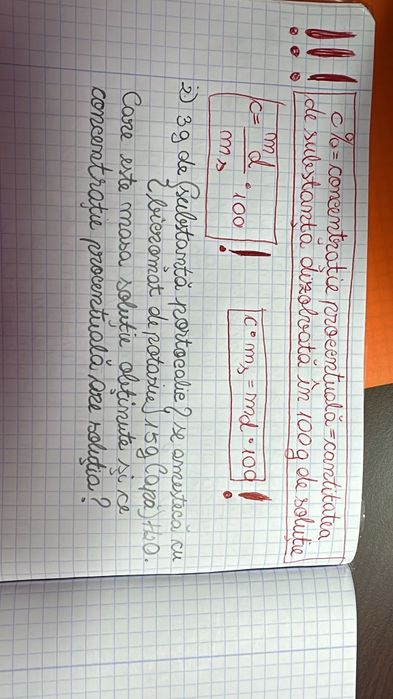 !!! c% = concentrație procentuală = cantitatea
de substanța dizolvată în 100g de soluție
c = md / ms · 100 !
c · ms = md · 100 !
2) 3g de (substanță portocalie) se amestecă cu
(bicromat de potasiu) 15g (apă) H2O.
Care este masa soluție obținute și ce
concentrație procentuală are soluția?